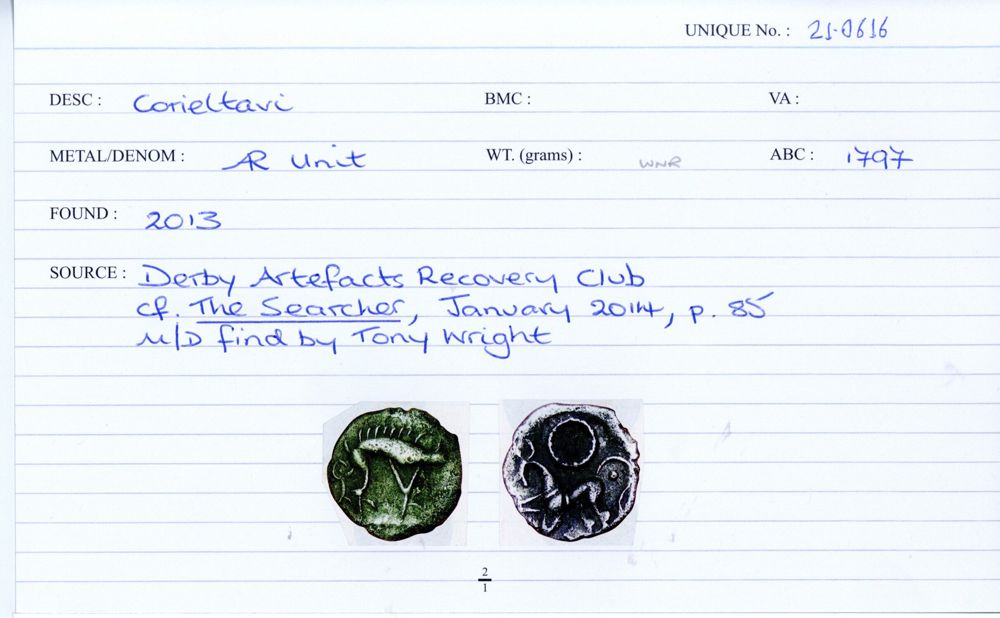 UNIQUE No. : 21-0616
DESC : Corieltavi BMC : VA :
METAL/DENOM : AR Unit WT. (grams) : WNR ABC : 1797
FOUND : 2013
SOURCE : Derby Artefacts Recovery Club
cf. The Searcher, January 2014, p. 85
M/D find by Tony Wright
2
1